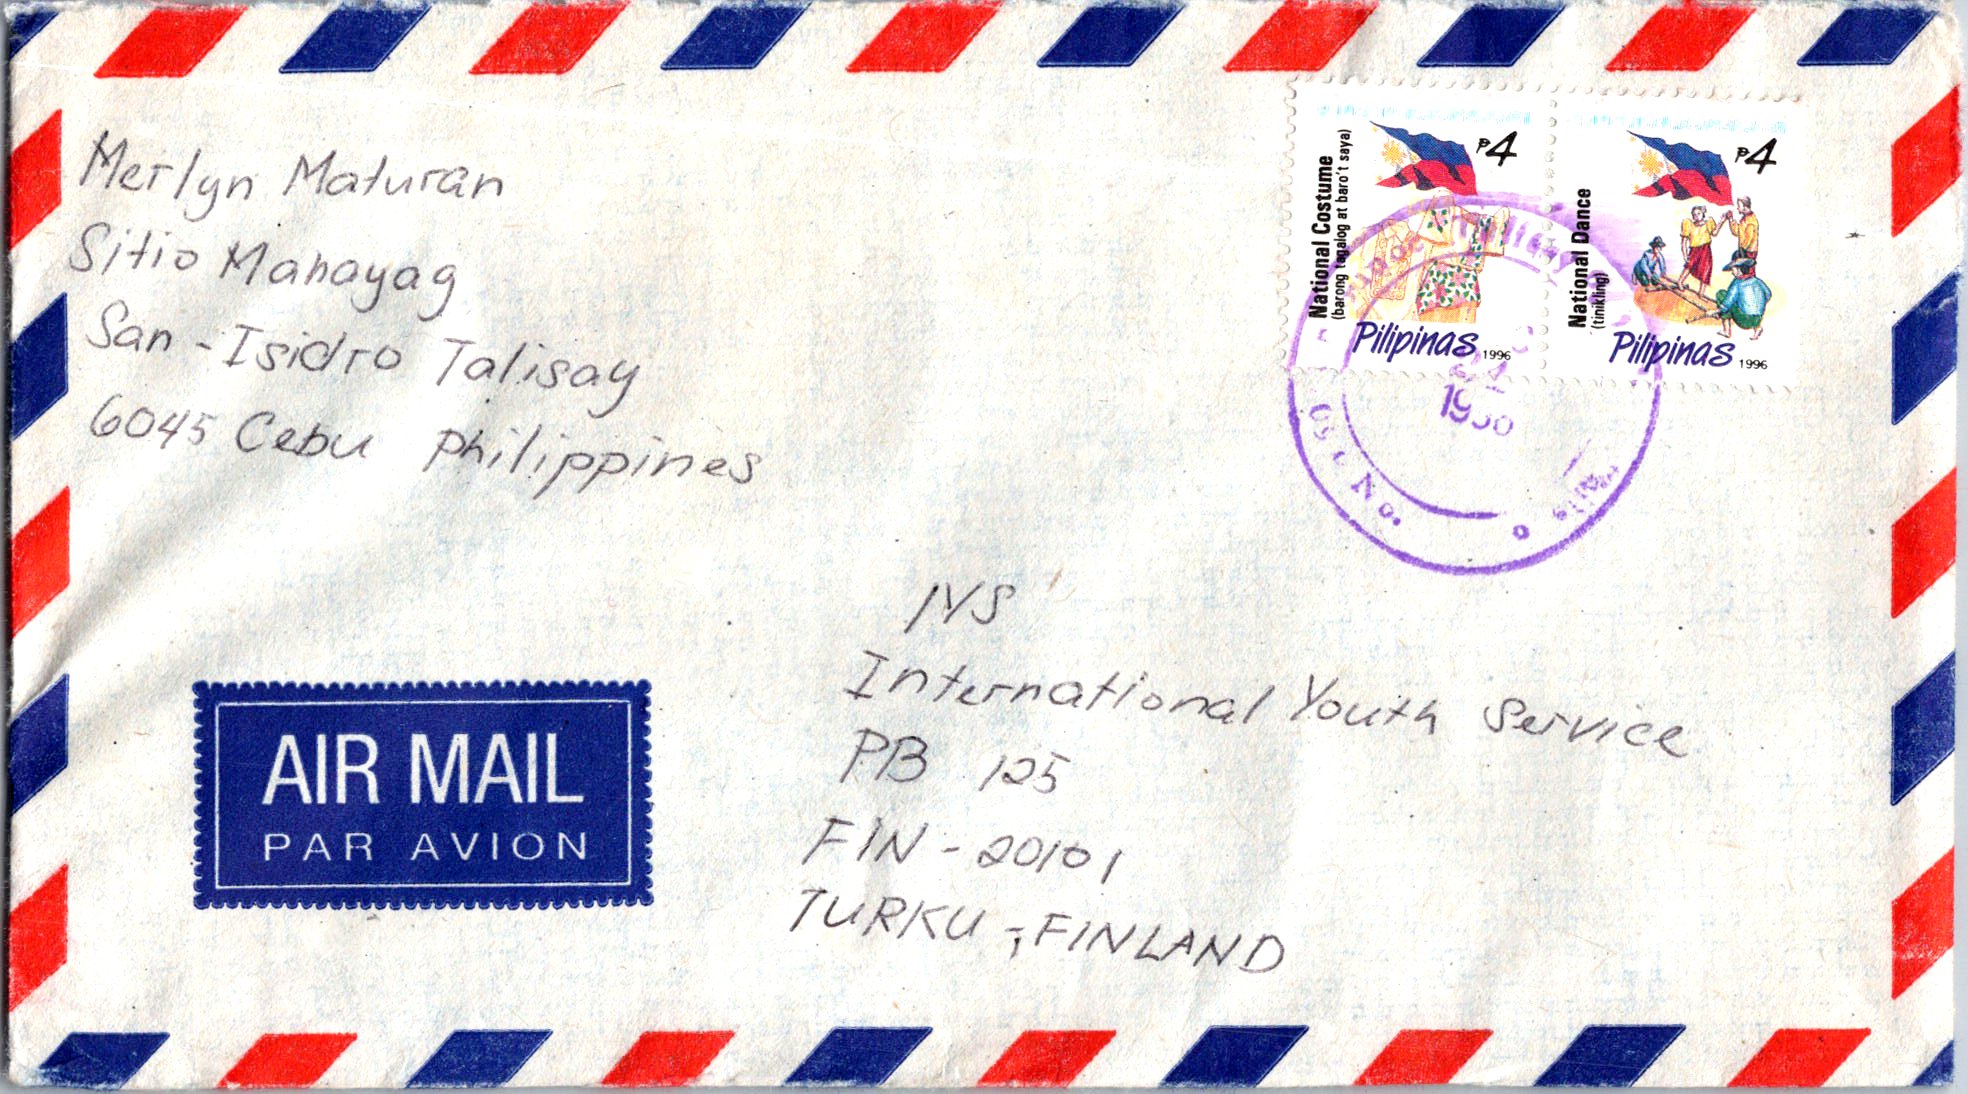 Merlyn Maturan
Sitio Mahayag
San-Isidro Talisay
6045 Cebu Philippines
National Costume
(barong tagalog at baro't saya)
₱4
Pilipinas 1996
National Dance
(tinikling)
₱4
Pilipinas 1996
24
AIR MAIL
PAR AVION
IYS
International Youth Service
PB 125
FIN - 20101
TURKU -, FINLAND